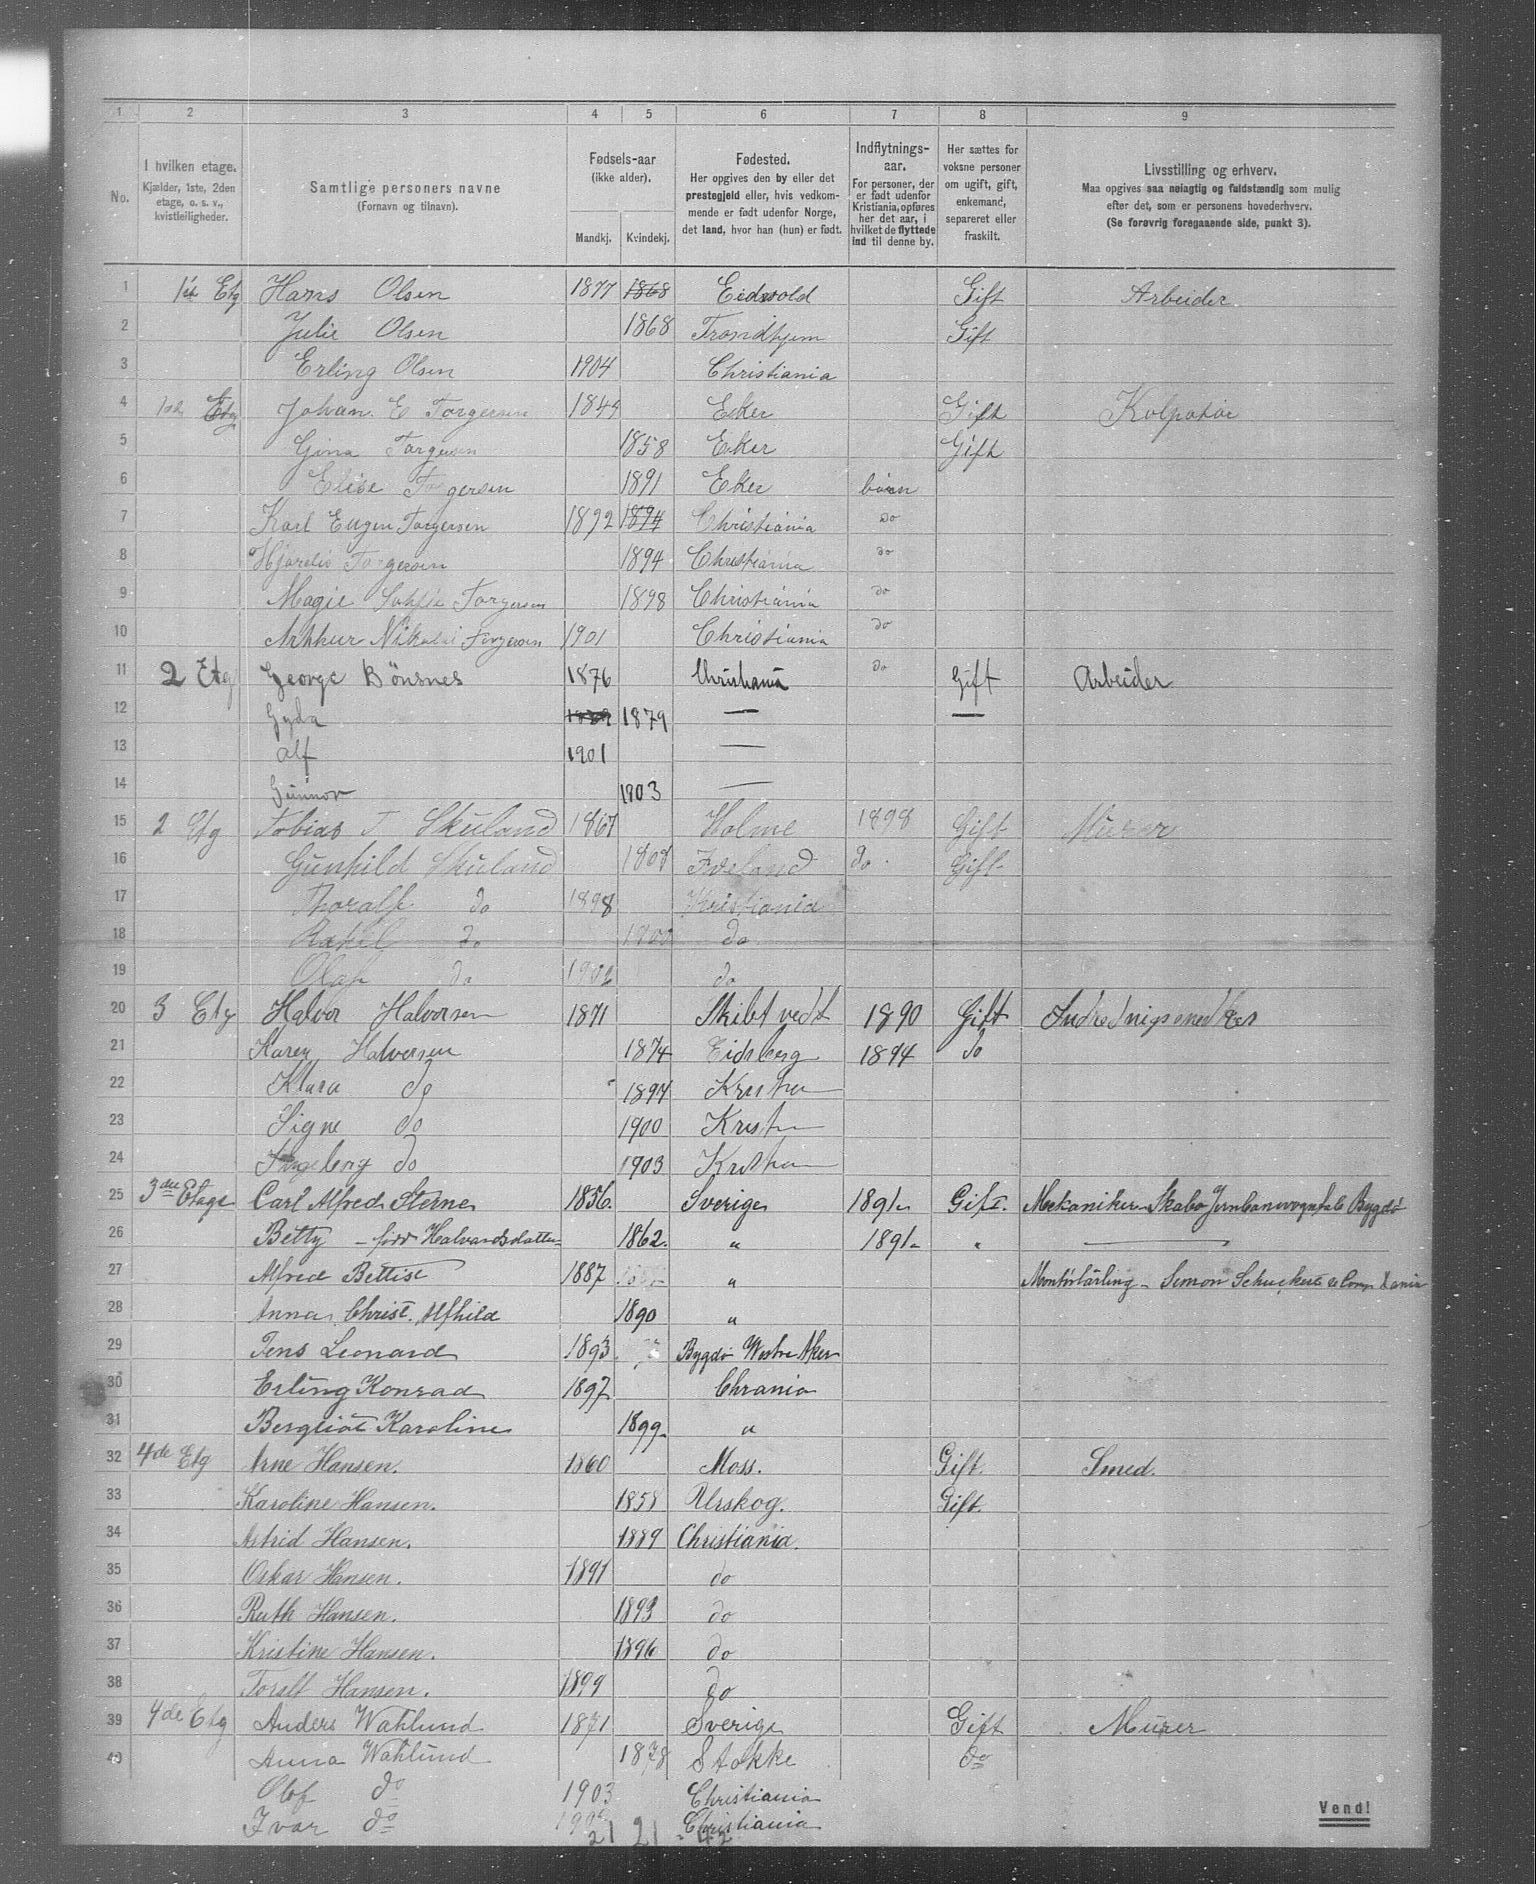 1 2 3 4 5 6 7 8 9
No. I hvilken etage. Kjælder, 1ste, 2den etage, o. s. v., kvistleiligheder. Samtlige personers navne (Fornavn og tilnavn). Fødsels-aar (ikke alder). Mandkj. Kvindekj. Fødested. Her opgives den by eller det prestegjeld eller, hvis vedkommende er født udenfor Norge, det land, hvor han (hun) er født. Indflytnings-aar. For personer, der er født udenfor Kristiania, opføres her det aar, i hvilket de flyttede ind til denne by. Her sættes for voksne personer om ugift, gift, enkemand, separeret eller fraskilt. Livsstilling og erhverv. Maa opgives saa nøiagtig og fuldstændig som mulig efter det, som er personens hovederhverv. (Se forøvrig foregaaende side, punkt 3).
1 1st Etg Hans Olsen 1877 1868 Eidsvold Gift Arbeider
2 Julie Olsen 1868 Trondhjem Gift
3 Erling Olsen 1904 Christiania
4 Etg Johan E Torgersen Eker Gift
5 Gina Torgersen 1858 Eker Gift
6 Elise Torgersen 1891 Eker
7 Karl Eugen Torgersen 1892 1894 Christiania do
8 Torgersen 1894 Christiania do
9 Magie Sofie Torgersen 1898 Christiania do
10 Arthur Nikolai Torgersen 1901 Christiania do
11 2 Etg George Bönsnes 1876 Christiania do Gift Arbeider
12 Gyda 1879 — —
13 Alf 1901 —
14 Gunnor 1903 —
15 2 Etg Tobias T Skuland 1867 Holme 1898 Gift Murer
16 Gunhild Skuland Iveland do. Gift
17 Thoralf do 1898 Kristiania
18 Rakel do 1900 do
19 Olaf do 1902 do
20 3 Etg Halvor Halvorsen 1871 Skibtvedt 1890 Gift Indrednigssnedker
21 Karen Halvorsen 1874 Eidsberg 1894 do
22 Klara do 1897 Kristia
23 Signe do 1900 Kristia
24 Ingeborg do 1903 Kristia
25 3die Etage Carl Alfred Sterner 1856. Sverige 1891 Gift. Mekaniker Skabo Jernbanevognfab Bygdø
26 Betty – född Halvardsdotter 1862. " 1891 " —
27 Alfred Bettist 1887 " Montörlärling – Simon Schuckert & Comp Xania
28 Anna Christ. Alfhild 1890 "
29 Jens Leonard 1893 Bygdø Westre Aker
30 Erling Konrad 1897 Chrania
31 Bergliot Karoline 1899 "
32 4de Etg Arne Hansen. 1860 Moss. Gift. Smed.
33 Karoline Hansen. 1858 Urskog. Gift.
34 Astrid Hansen. 1889 Christiania.
35 Oskar Hansen. 1891 do
36 Ruth Hansen. 1893 do
37 Kristine Hansen. 1896 do
38 Toralf Hansen. 1899 do
39 4de Etg Anders Wahlund 1871 Sverige Gift Murer
40 Anna Wahlund 1878 Stokke do
Olof do 1903 Christiania
Ivar do Christiania
21 21 - 42
Vend!